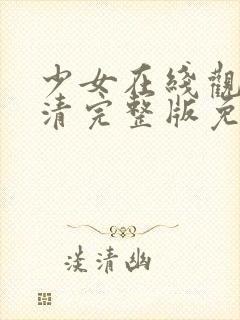 少女在线觀
清完整版免
淡清幽